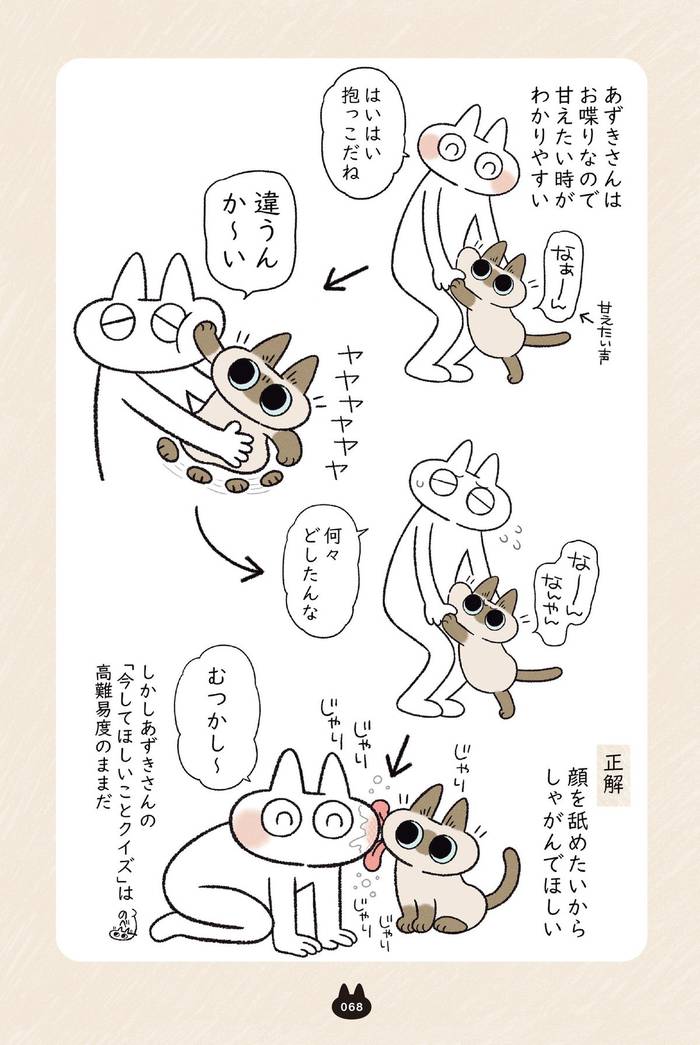 あずきさんは
お喋りなので
甘えたい時が
わかりやすい
はいはい
抱っこだね
なぁーん
甘えたい声
違うん
か〜い
ヤヤヤヤヤヤ
何々
どしたんな
なーん
なんやん
正解
顔を舐めたいから
しゃがんでほしい
じゃり
じゃり
じゃり
じゃり
じゃり
むつかし〜
しかしあずきさんの
「今してほしいことクイズ」は
高難易度のままだ
068